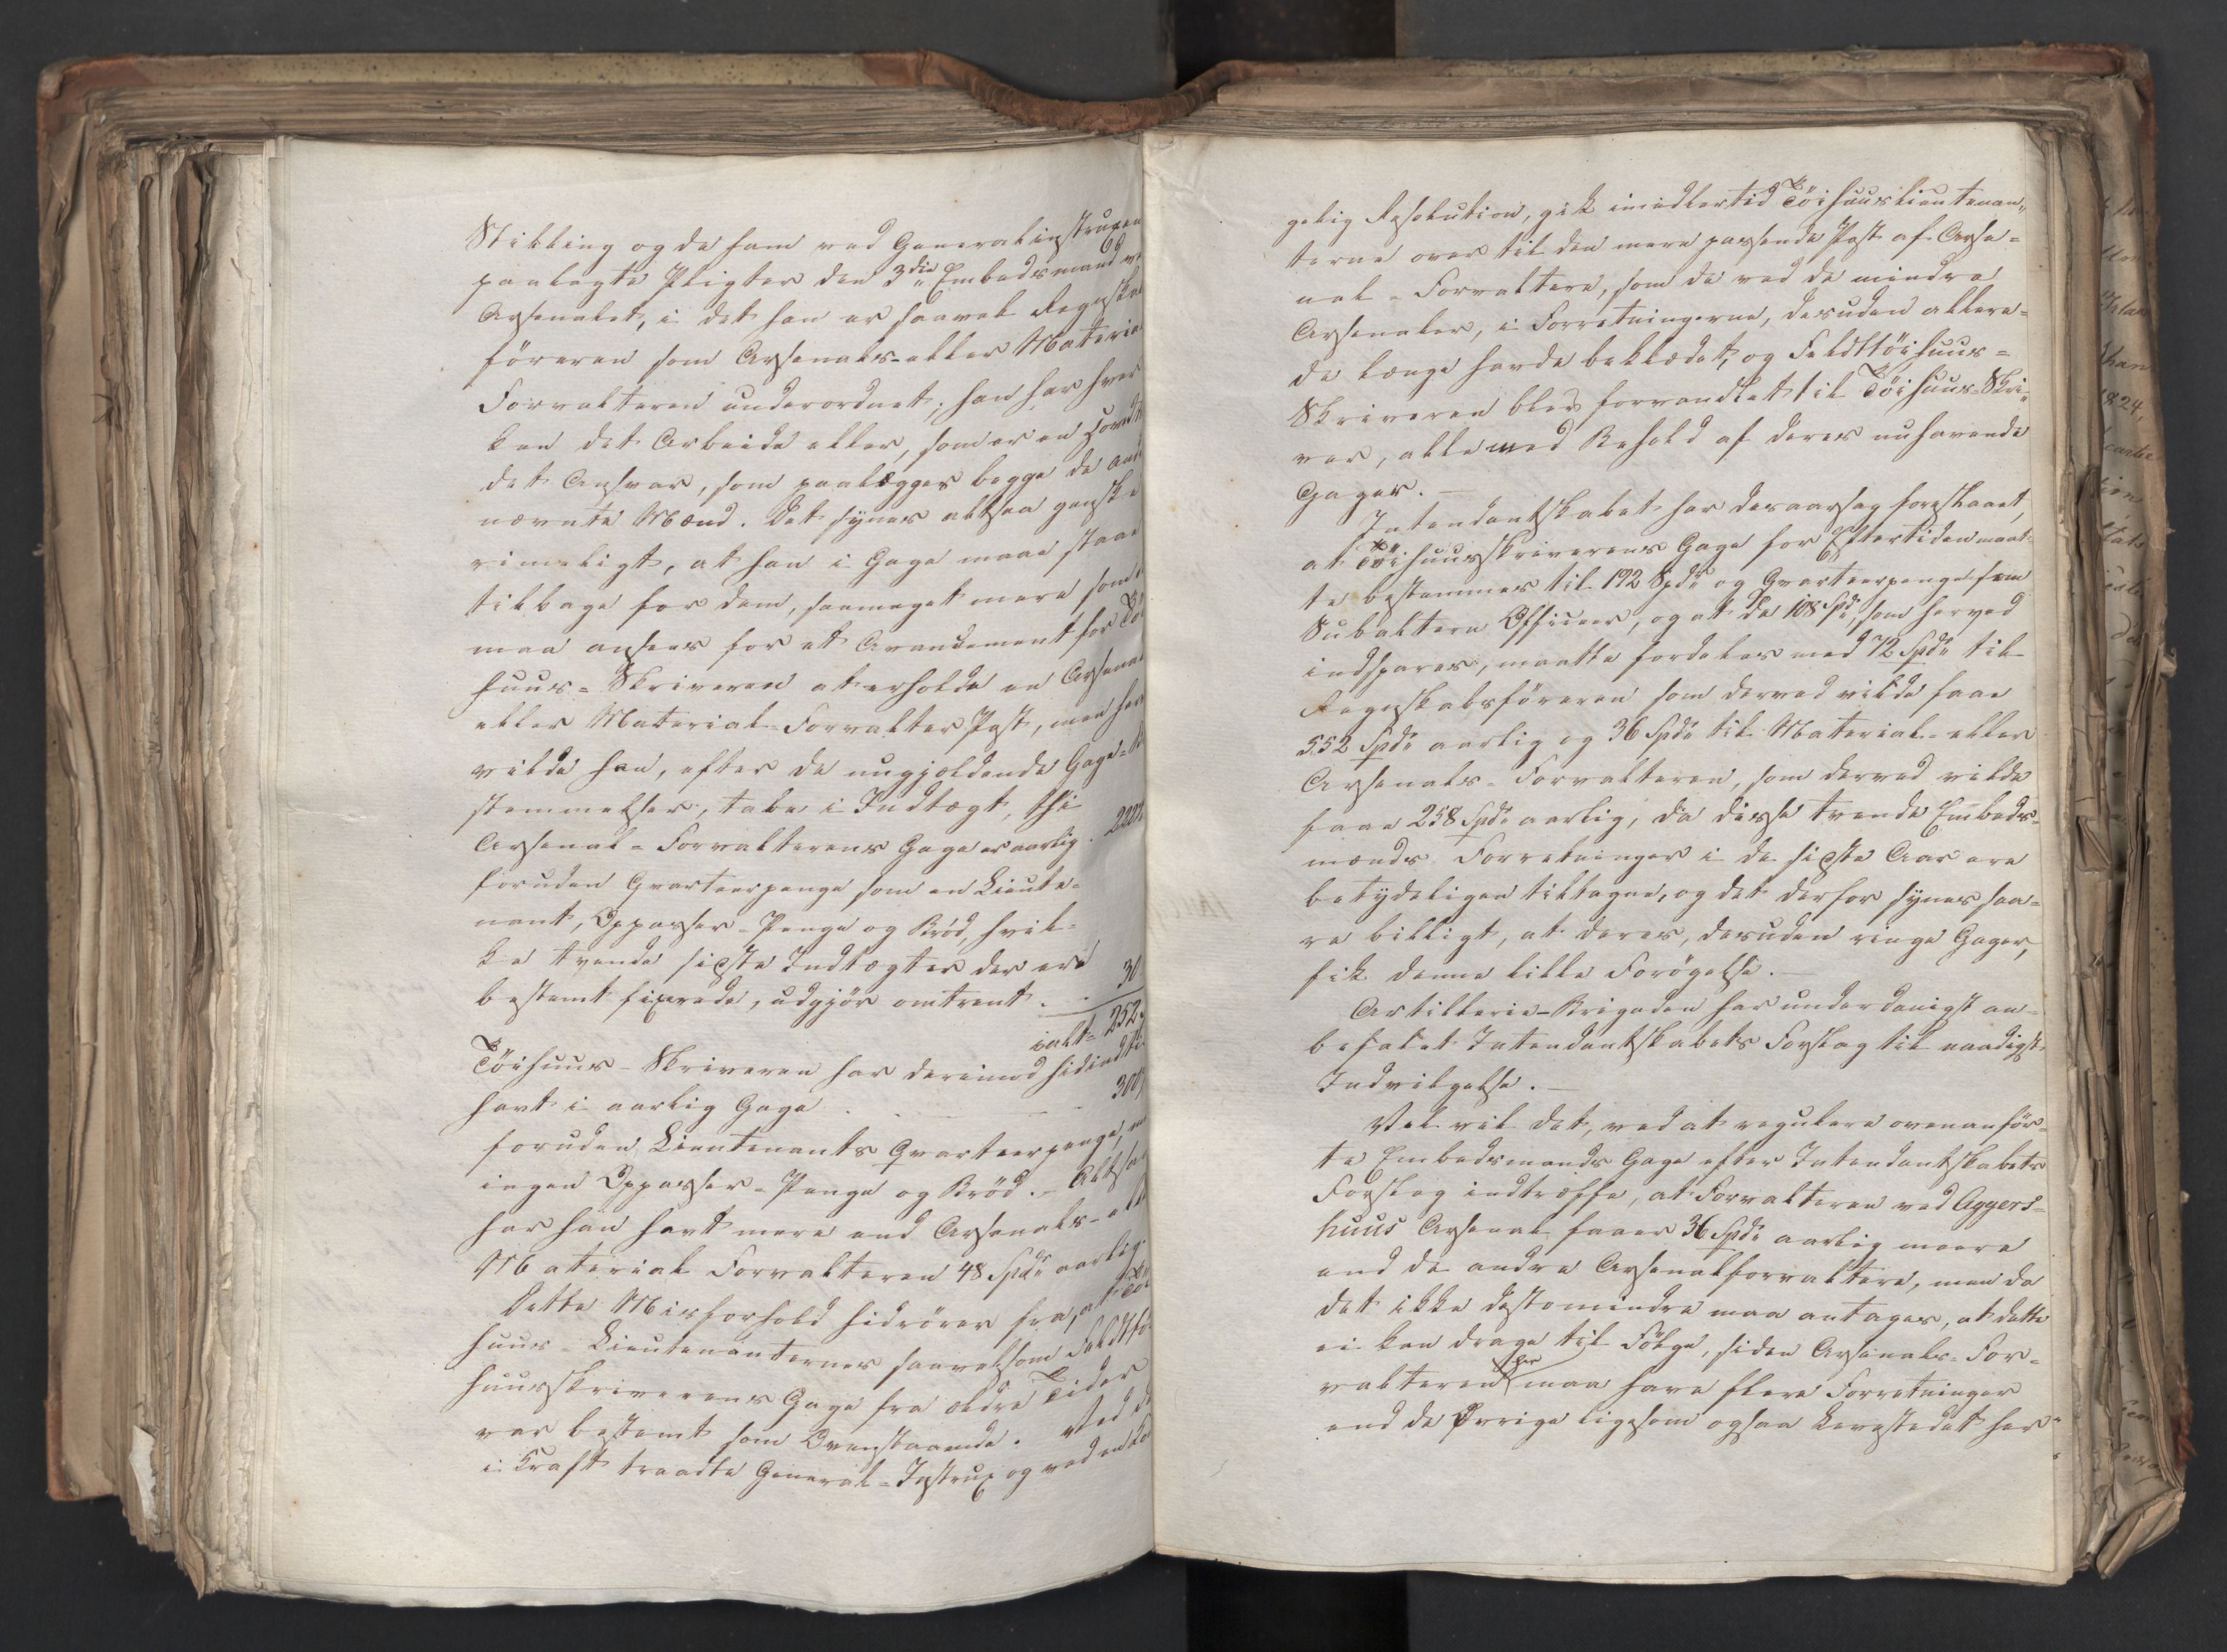 Stilling og de ham ved Generalinstruxen
paalagte Pligter den 3die Embedsmand v
Arsenalet, i det han er saavel Regnskab
föreren som Arsenals- eller Materia
Forvalteren underordnet; han har hver
ken det Arbeide eller, som er en Hoved
det Ansvar, som paalægges begge de and
nævnte Mænd. Det synes altsaa ganske
rimeligt, at han i Gage maae staae
tilbage for dem, saameget mere som
maa ansees for et Avancement for Töi
huus-Skriveren at erholde en Arsenal
eller Material-Forvalter Post, men her
vilde han, efter de nugjældende Gage-B
stemmelser, tabe i Indtægt, thi
Arsenal-Forvalterens Gage er aarlig . 222
foruden Qvarteerpenge som en Lieute-
nant, Oppasser-Penge og Bröd, hvil-
ke tvende sidste Indtægter der ere
bestemt fixerede, udgjör omtrent . . 30
ialt= 252
Töihuus-Skriveren har derimod hidindtil
havt i aarlig Gage . . . 300
foruden Lieutenants Qvarteerpenge, m
ingen Oppasser-Penge og Bröd. - Altsaa
har han havt mere end Arsenals- ell
Material Forvalteren 48 Spd aarlig.
Dette Misforhold hidrörer fra, at Töi
huus-Lieutenanternes saavelsom Feldttöi
huusskriverens Gage fra ældre Tider
var bestemt som Ovenstaaende. Ved de
i Kraft traadte General-Instrux og ved en Kon
gelig Resolution, gik imidlertid Töihuuslieutenan-
terne over til den mere passende Post af Arse-
nal-Forvaltere, som de ved de mindre
Arsenaler, i Forretningerne, desuden allere-
de længe havde beklædet, og Feldttöihuus-
Skriveren blev forvandlet til Töihuus-Skri-
ver, alle med Behold af deres nuhavende
Gager.
Intendantskabet har desaarsag foreslaaet,
at Töihuusskriverens Gage for Eftertiden maat-
te bestemmes til 192 Spd og Qvarteerpenge som
Subaltern Officeer, og at de 108 Spd, som herved
indspares, maatte fordeles med 72 Spd til
Regnskabsföreren som derved vilde faae
552 Spd aarlig og 36 Spd til Material- eller
Arsenals-Forvalteren, som derved vilde
faae 258 Spd aarlig, da disse tvende Embeds-
mænds Forretninger i de sidste Aar ere
betydeligen tiltagne, og det derfor synes saa-
re billigt, at deres, desuden ringe Gager,
fik denne lille Forögelse.
Artillerie-Brigaden har underdanigst an-
befalet Intendantskabets Forslag til naadigst
Indvilgelse.
Vel vil det, ved at regulere ovenanför-
te Embedsmænds Gage efter Intendantskabets
Forslag indtræffe, at Forvalteren ved Aggers-
huus Arsenal faaer 36 Spd aarlig meere
end de andre Arsenalforvaltere, men da
det ikke destomindre maa antages, at dette
ei kan drage til Fölge, siden Arsenals-For-
valteren her maa have flere Forretninger
end de Övrige ligesom ogsaa Levestedet her